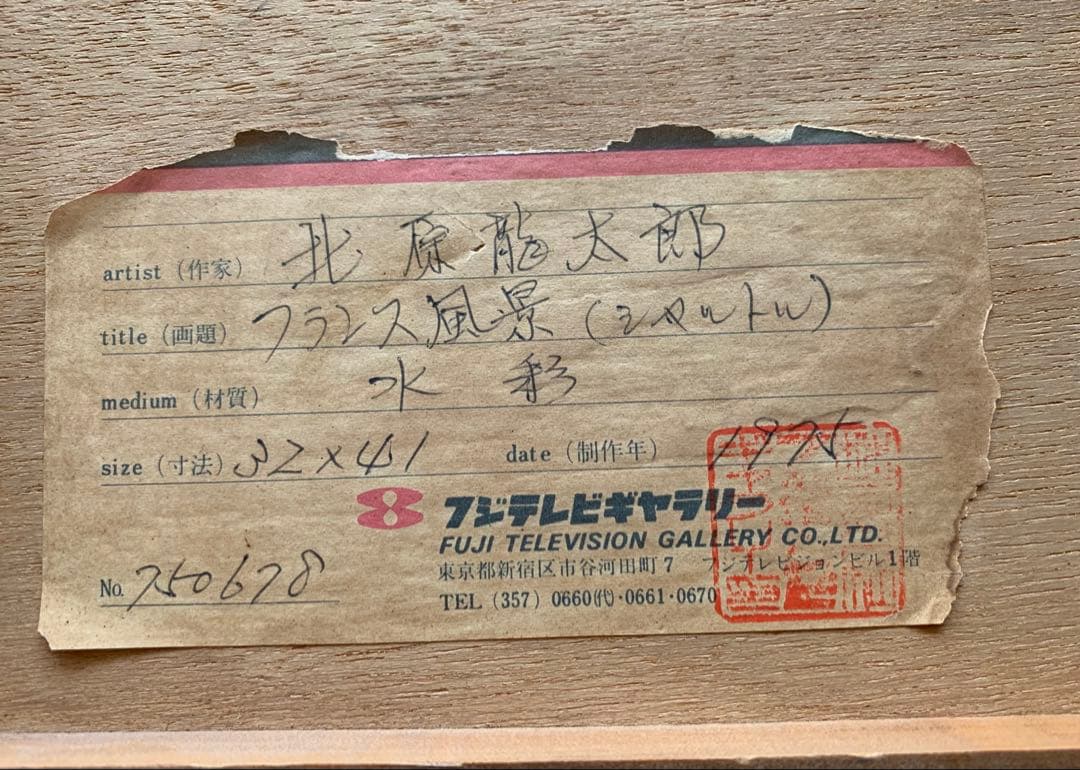 artist（作家） 北原龍太郎
title（画題） フランス風景（シャルトル）
medium（材質） 水彩
size（寸法） 32×41 date（制作年） 1975
フジテレビギャラリー
FUJI TELEVISION GALLERY CO.,LTD.
東京都新宿区市谷河田町7 フジテレビジョンビル1階
No. 750678
TEL（357）0660㈹・0661・0670